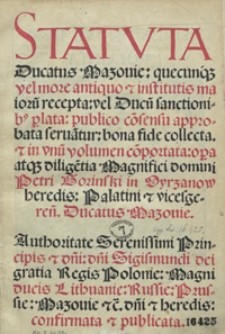 STATVTA
Ducatus Mazovie: quecunq̃
vel more antiquo & institutis ma
iorũ recepta: vel Ducũ sanctioni-
bꝰ p̃lata: publico cõsensu appro
bata seruãtur: bona fide collecta.
& in vnũ volumen cõportata: oꝑa
atq̃ diligẽtia Magnifici domini
Petri Gorinski in Vyrzanow
heredis: Palatini & vicesge-
reñ. Ducatus Mazovie.
Authoritate Serenissimi Prin-
cipis & dñi: dñi Sigismundi dei
gratia Regis Polonie: Magni
ducis Lithuanie: Russie: Prus-
sie: Mazovie &c̃. dñi & heredis:
confirmata & publicata.
16425